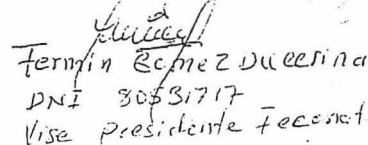 Fermin Gomez Ducerina
DNI 80531717
Vise presidente Feconat